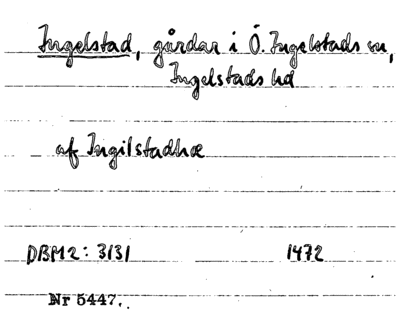 Ingelstad, gårdar i Ö. Ingelstads sn,
Ingelstads hd
af Ingilstadhæ
DBM2: 3131 1472
Nr 5447.